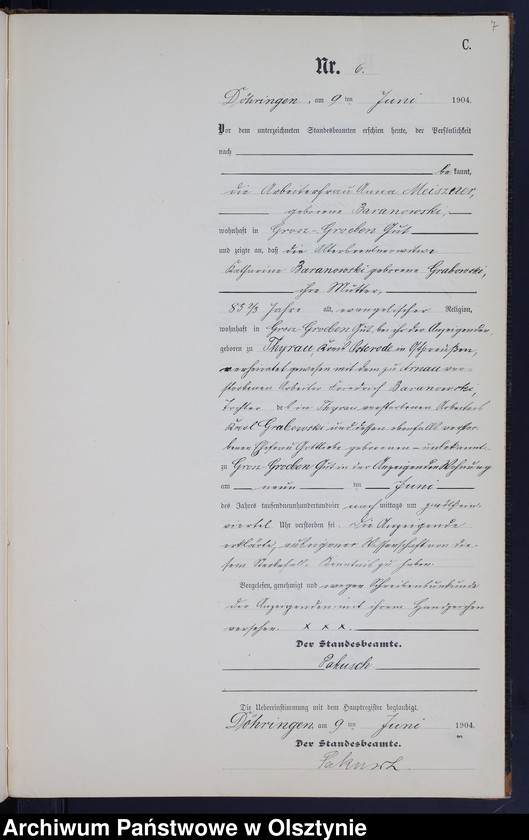 7
C.
Nr. 6.
Döhringen, am 9 ten Juni 1904.
Vor dem unterzeichneten Standesbeamten erschien heute, der Persönlichkeit
nach
bekannt,
die Arbeiterfrau Anna Meiszner,
geborene Baranowski,
wohnhaft in Grosz-Gröben Gut
und zeigte an, daß die Altersrentnerwitwe
Katharine Baranowski geborene Grabowski,
ihre Mutter,
83 2/3 Jahre alt, evangelischer Religion,
wohnhaft in Grosz Gröben Gut, bei der Anzeigenden,
geboren zu Thyrau, Kreis Osterode in Ostpreußen,
verheiratet gewesen mit dem zu Arnau ver-
storbenen Arbeiter Friedrich Baranowski,
Tochter des in Thyrau verstorbenen Arbeiters
Karl Grabowski und dessen ebenfalls verstor-
benen Ehefrau Gottliebe geborenen - unbekannt -
zu Grosz Gröben Gut in der Anzeigenden Wohnung
am neun ten Juni
des Jahres tausendneunhundertundvier nach mittags um
viertel Uhr verstorben sei. Die Anzeigende
erklärte, aus eigener Wissenschaft von die-
sem Sterbefalle Kenntnis zu haben.
Vorgelesen, genehmigt und wegen Schreibensunkunde
der Anzeigenden mit ihrem Handzeichen
versehen. x x x.
Der Standesbeamte.
Pakusch
Die Uebereinstimmung mit dem Hauptregister beglaubigt.
Döhringen, am 9 ten Juni 1904.
Der Standesbeamte.
Pakusch
Archiwum Państwowe w Olsztynie